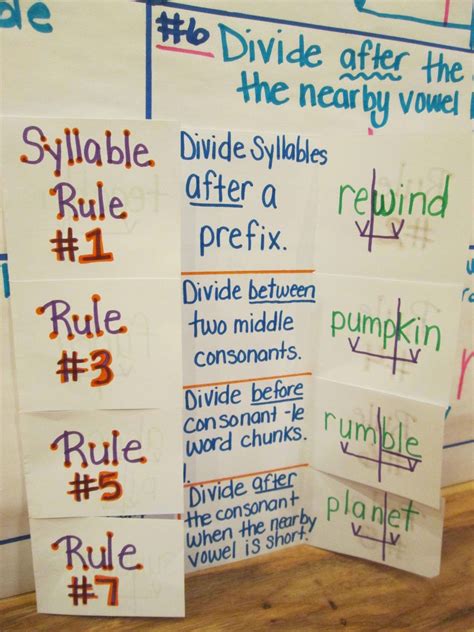 de
#6 Divide after the
the nearby vowel
Syllable
Rule
#1
Divide Syllables
after a
prefix.
rewind
Rule
#3
Divide between
two middle
consonants.
pumpkin
Rule
#5
Divide before
consonant -le
word chunks.
rumble
Rule
#7
Divide after
the consonant
when the nearby
vowel is short.
planet